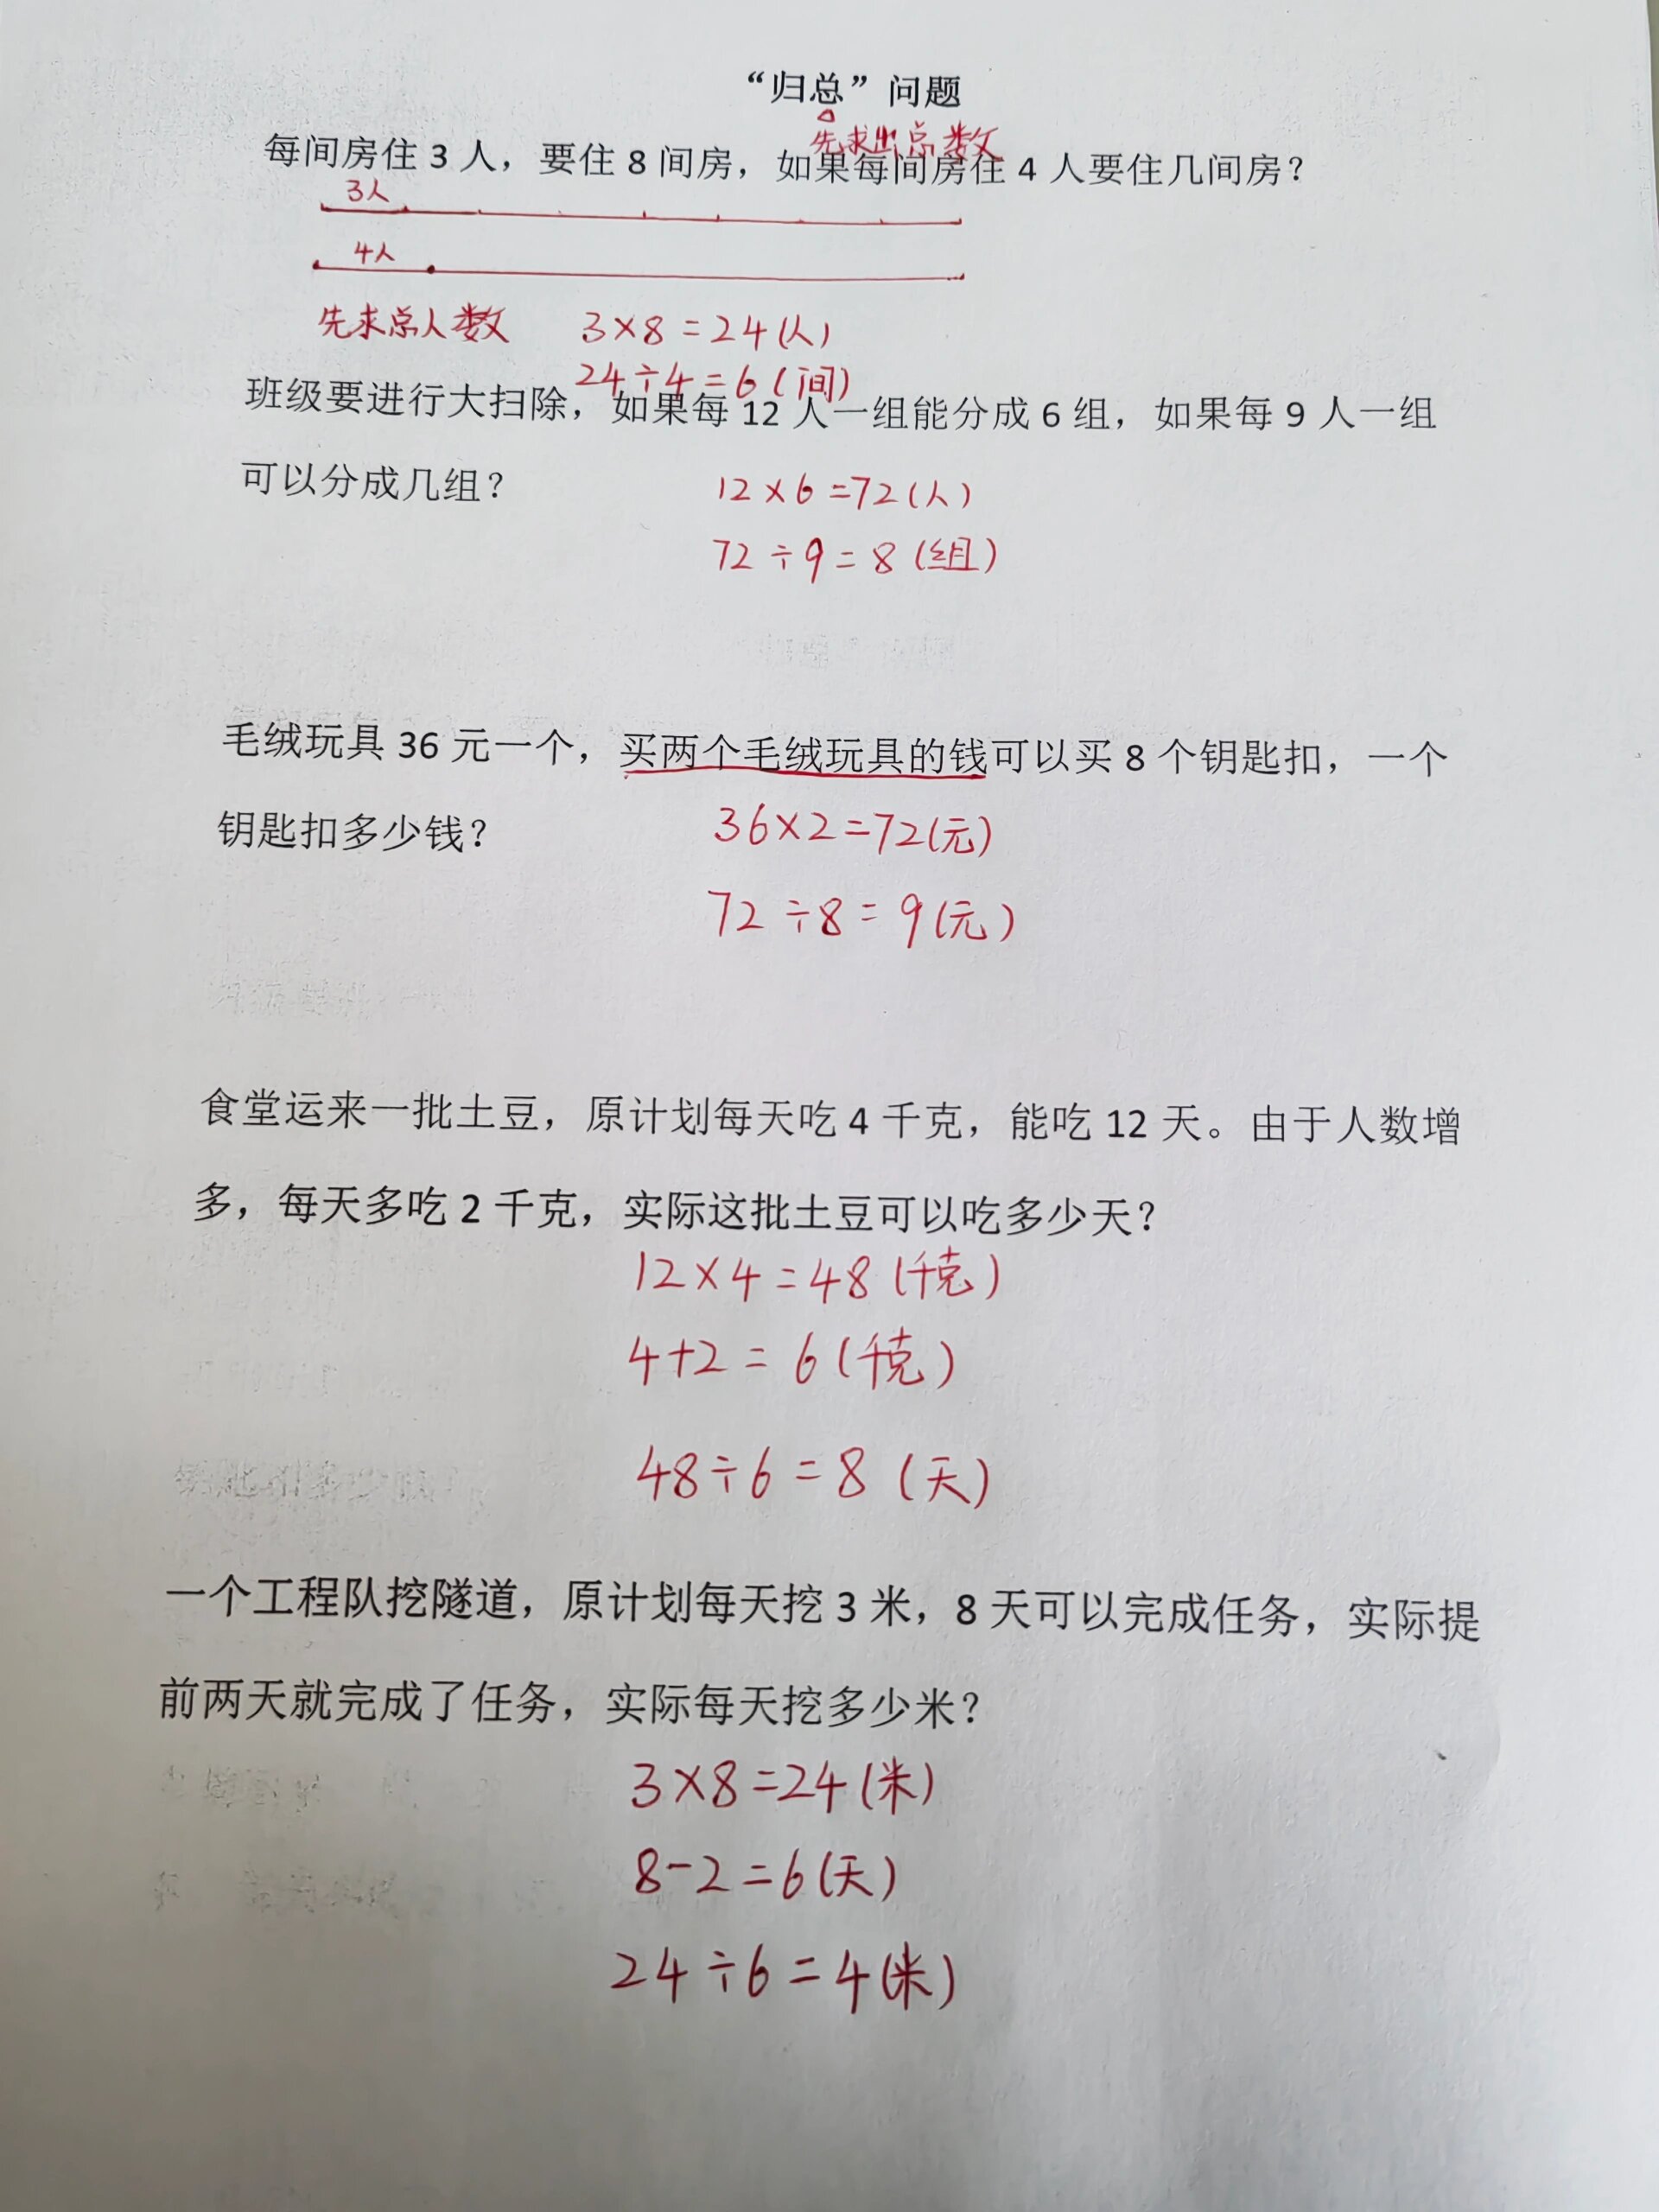 “归总”问题
先求出总数
每间房住 3 人，要住 8 间房，如果每间房住 4 人要住几间房？
3人
4人
先求总人数 3×8=24(人)
24÷4=6(间)
班级要进行大扫除，如果每 12 人一组能分成 6 组，如果每 9 人一组
可以分成几组？
12×6=72(人)
72÷9=8(组)
毛绒玩具 36 元一个，买两个毛绒玩具的钱可以买 8 个钥匙扣，一个
钥匙扣多少钱？
36×2=72(元)
72÷8=9(元)
食堂运来一批土豆，原计划每天吃 4 千克，能吃 12 天。由于人数增
多，每天多吃 2 千克，实际这批土豆可以吃多少天？
12×4=48(千克)
4+2=6(千克)
48÷6=8(天)
一个工程队挖隧道，原计划每天挖 3 米，8 天可以完成任务，实际提
前两天就完成了任务，实际每天挖多少米？
3×8=24(米)
8-2=6(天)
24÷6=4(米)